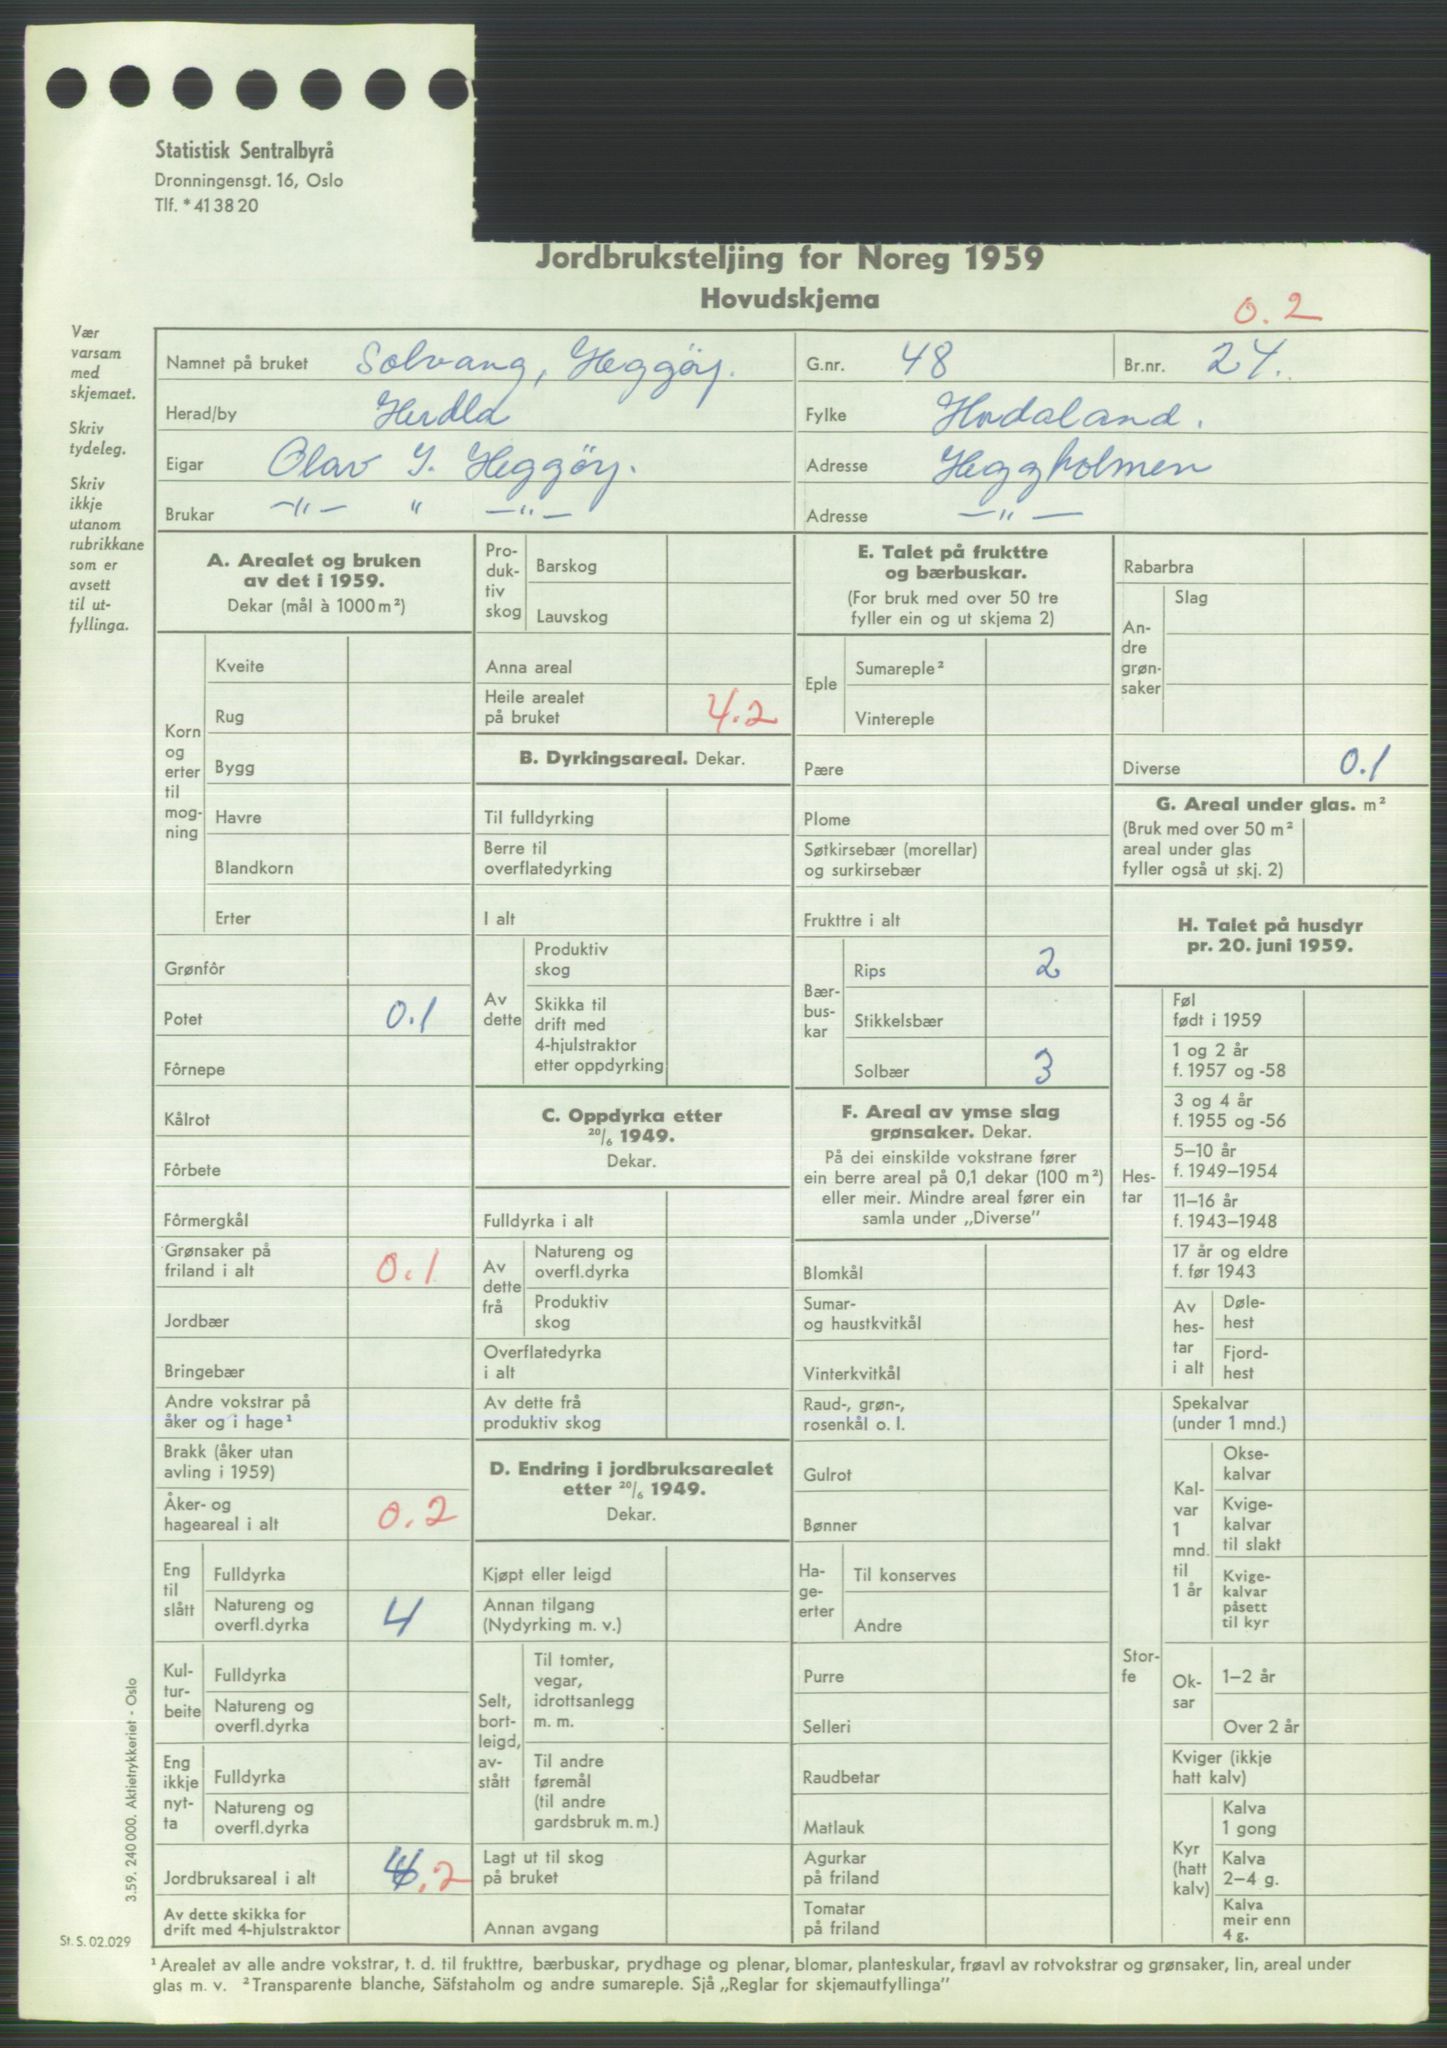 Statistisk Sentralbyrå
Dronningensgt. 16, Oslo
Tlf. * 41 38 20
Jordbruksteljing for Noreg 1959
Hovudskjema
0.2
Vær
varsam
med
skjemaet.
Skriv
tydeleg.
Skriv
ikkje
utanom
rubrikkane
som er
avsett
til ut-
fyllinga.
Namnet på bruket Solvang, Heggöy. G.nr. 48 Br.nr. 24.
Herad/by Herdla Fylke Hordaland.
Eigar Olav J. Heggöy. Adresse Heggholmen
Brukar —"— " —"— Adresse —"—
A. Arealet og bruken
av det i 1959.
Dekar (mål à 1000 m²)
Korn
og
erter
til
mog-
ning
Kveite
Rug
Bygg
Havre
Blandkorn
Erter
Grønfôr
Potet 0.1
Fôrnepe
Kålrot
Fôrbete
Fôrmergkål
Grønsaker på
friland i alt 0.1
Jordbær
Bringebær
Andre vokstrar på
åker og i hage¹
Brakk (åker utan
avling i 1959)
Åker- og
hageareal i alt 0.2
Eng
til
slått
Fulldyrka
Natureng og
overfl.dyrka 4
Kul-
tur-
beite
Fulldyrka
Natureng og
overfl.dyrka
Eng
ikkje
nyt-
ta
Fulldyrka
Natureng og
overfl.dyrka
Jordbruksareal i alt 4.2
Av dette skikka for
drift med 4-hjulstraktor
Pro-
duk-
tiv
skog
Barskog
Lauvskog
Anna areal
Heile arealet
på bruket 4.2
B. Dyrkingsareal. Dekar.
Til fulldyrking
Berre til
overflatedyrking
I alt
Av
dette
Produktiv
skog
Skikka til
drift med
4-hjulstraktor
etter oppdyrking
C. Oppdyrka etter
20/6 1949.
Dekar.
Fulldyrka i alt
Av
dette
frå
Natureng og
overfl.dyrka
Produktiv
skog
Overflatedyrka
i alt
Av dette frå
produktiv skog
D. Endring i jordbruksarealet
etter 20/6 1949.
Dekar.
Kjøpt eller leigd
Annan tilgang
(Nydyrking m. v.)
Selt,
bort-
leigd,
av-
stått
Til tomter,
vegar,
idrottsanlegg
m. m.
Til andre
føremål
(til andre
gardsbruk m. m.)
Lagt ut til skog
på bruket
Annan avgang
E. Talet på frukttre
og bærbuskar.
(For bruk med over 50 tre
fyller ein og ut skjema 2)
Eple
Sumareple²
Vintereple
Pære
Plome
Søtkirsebær (morellar)
og surkirsebær
Frukttre i alt
Bær-
bus-
kar
Rips 2
Stikkelsbær
Solbær 3
F. Areal av ymse slag
grønsaker. Dekar.
På dei einskilde vokstrane fører
ein berre areal på 0,1 dekar (100 m²)
eller meir. Mindre areal fører ein
samla under „Diverse”
Blomkål
Sumar-
og haustkvitkål
Vinterkvitkål
Raud-, grøn-,
rosenkål o. l.
Gulrot
Bønner
Ha-
ge-
erter
Til konserves
Andre
Purre
Selleri
Raudbetar
Matlauk
Agurkar
på friland
Tomatar
på friland
Rabarbra
An-
dre
grøn-
saker
Slag
Diverse 0.1
G. Areal under glas. m²
(Bruk med over 50 m²
areal under glas
fyller også ut skj. 2)
H. Talet på husdyr
pr. 20. juni 1959.
Hes-
tar
Føl
født i 1959
1 og 2 år
f. 1957 og -58
3 og 4 år
f. 1955 og -56
5–10 år
f. 1949–1954
11–16 år
f. 1943–1948
17 år og eldre
f. før 1943
Av
hes-
tar
i alt
Døle-
hest
Fjord-
hest
Stor-
fe
Spekalvar
(under 1 mnd.)
Kal-
var
1
mnd.
til
1 år
Okse-
kalvar
Kvige-
kalvar
til slakt
Kvige-
kalvar
påsett
til kyr
Ok-
sar
1–2 år
Over 2 år
Kviger (ikkje
hatt kalv)
Kyr
(hatt
kalv)
Kalva
1 gong
Kalva
2–4 g.
Kalva
meir enn
4 g.
3.59. 240 000. Aktietrykkeriet - Oslo
St. S. 02.029
¹ Arealet av alle andre vokstrar, t. d. til frukttre, bærbuskar, prydhage og plenar, blomar, planteskular, frøavl av rotvokstrar og grønsaker, lin, areal under
glas m. v. ² Transparente blanche, Säfstaholm og andre sumareple. Sjå „Reglar for skjemautfyllinga”